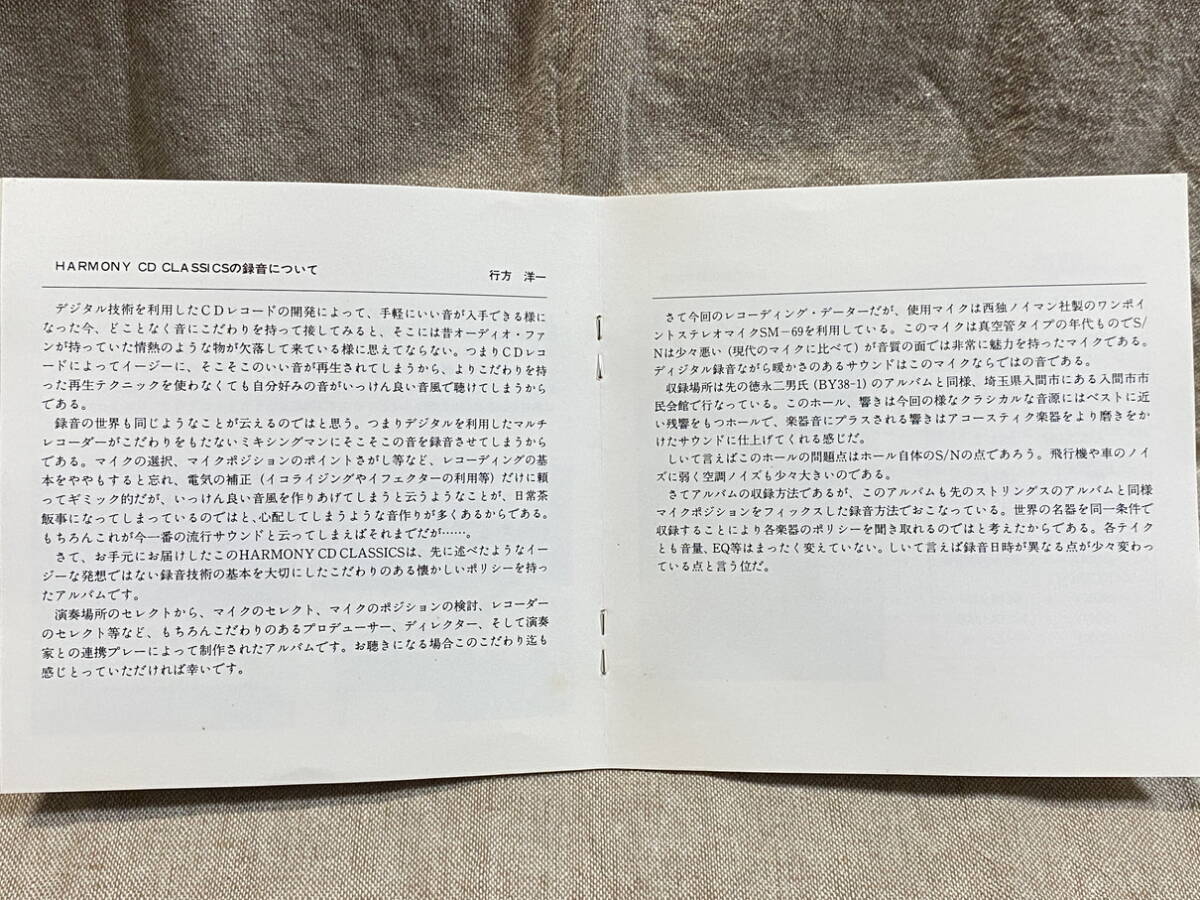 HARMONY CD CLASSICSの録音について　　行方　洋一
デジタル技術を利用したＣＤレコードの開発によって、手軽にいい音が入手できる様に
なった今、どことなく音にこだわりを持って接してみると、そこには昔オーディオ・ファ
ンが持っていた情熱のような物が欠落して来ている様に思えてならない。つまりＣＤレコ
ードによってイージーに、そこそこのいい音が再生されてしまうから、よりこだわりを持
った再生テクニックを使わなくても自分好みの音がいっけん良い音風で聴けてしまうから
である。
録音の世界も同じようなことが云えるのではと思う。つまりデジタルを利用したマルチ
レコーダーがこだわりをもたないミキシングマンにそこそこの音を録音させてしまうから
である。マイクの選択、マイクポジションのポイントさがし等など、レコーディングの基
本をややもすると忘れ、電気の補正（イコライジングやイフェクターの利用等）だけに頼
ってギミック的だが、いっけん良い音風を作りあげてしまうと云うようなことが、日常茶
飯事になってしまっているのではと、心配してしまうような音作りが多くあるからである。
もちろんこれが今一番の流行サウンドと云ってしまえばそれまでだが……。
さて、お手元にお届けしたこのHARMONY CD CLASSICSは、先に述べたようなイー
ジーな発想ではない録音技術の基本を大切にしたこだわりのある懐かしいポリシーを持っ
たアルバムです。
演奏場所のセレクトから、マイクのセレクト、マイクのポジションの検討、レコーダー
のセレクト等など、もちろんこだわりのあるプロデューサー、ディレクター、そして演奏
家との連携プレーによって制作されたアルバムです。お聴きになる場合このこだわり迄も
感じとっていただければ幸いです。
さて今回のレコーディング・データーだが、使用マイクは西独ノイマン社製のワンポイ
ントステレオマイクSM－69を利用している。このマイクは真空管タイプの年代ものでS/
Nは少々悪い（現代のマイクに比べて）が音質の面では非常に魅力を持ったマイクである。
ディジタル録音ながら暖かさのあるサウンドはこのマイクならではの音である。
収録場所は先の徳永二男氏（BY38-1）のアルバムと同様、埼玉県入間市にある入間市市
民会館で行なっている。このホール、響きは今回の様なクラシカルな音源にはベストに近
い残響をもつホールで、楽器音にプラスされる響きはアコースティク楽器をより磨きをか
けたサウンドに仕上げてくれる感じだ。
しいて言えばこのホールの問題点はホール自体のS/Nの点であろう。飛行機や車のノイ
ズに弱く空調ノイズも少々大きいのである。
さてアルバムの収録方法であるが、このアルバムも先のストリングスのアルバムと同様
マイクポジションをフィックスした録音方法でおこなっている。世界の名器を同一条件で
収録することにより各楽器のポリシーを聞き取れるのではと考えたからである。各テイク
とも音量、EQ等はまったく変えていない。しいて言えば録音日時が異なる点が少々変わっ
ている点と言う位だ。